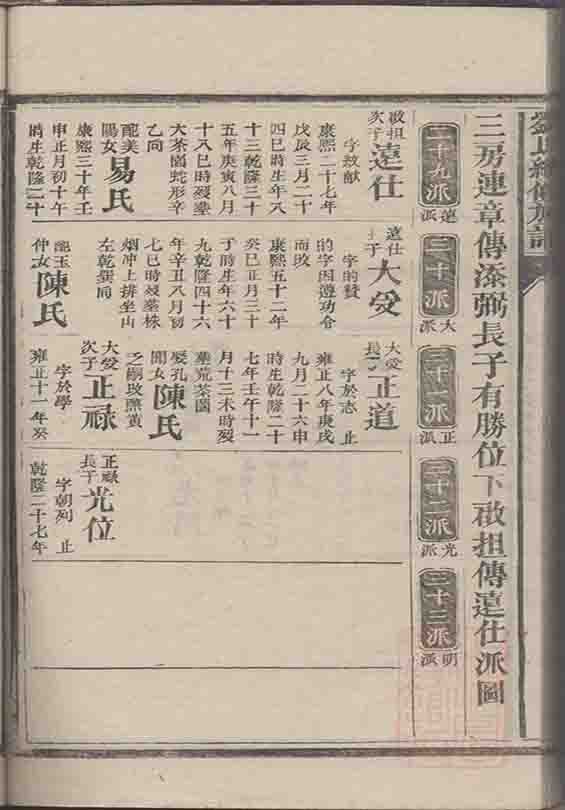 三房連章傳添弼長子有勝位下啟担傳遠仕派圖
二十九派
遠派
三十派
大派
三十一派
正派
三十二派
光派
三十三派
明派
啟担
次子
遠仕
字紋獻
康熙二十七年
戊辰三月二十
四巳時生年八
十三乾隆三十
五年庚寅八月
十八巳時殁塟
大茶園蛇形辛
乙向
配美
陽女
易氏
康熙三十年壬
申正月初十午
時生乾隆二十
遠仕
長子
大受
字的贊
的字因遵功令
而改
康熙五十二年
癸巳正月三十
子時生年六十
九乾隆四十六
年辛丑八月初
七巳時殁塟株
烟冲上排坐山
左乾巽向
配玉
仲女
陳氏
大受
長子
正道
字於志 止
雍正八年庚戌
九月二十六申
時生乾隆二十
七年壬午十一
月十三未時殁
塟荒茶園
娶孔
聞女
陳氏
之嗣改醮黄
大受
次子
正祿
字於學
雍正十一年癸
正祿
長子
光位
字朝列 止
乾隆二十七年